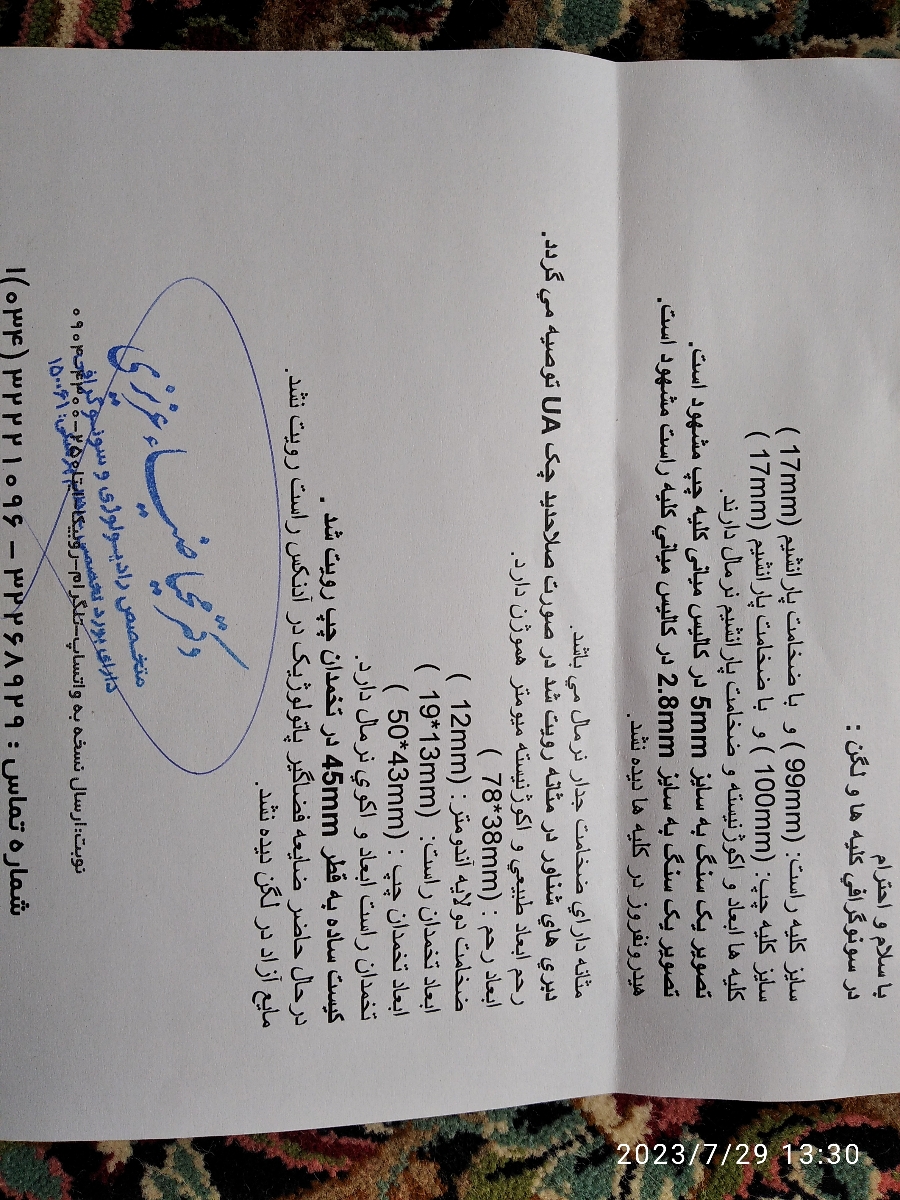 با سلام و احترام
در سونوگرافي کلیه ها و لگن :
سایز کلیه راست: (99mm ) و با ضخامت پارانشیم (17mm )
سایز کلیه چپ: (100mm ) و با ضخامت پارانشیم (17mm )
کلیه ها ابعاد و اکوژنیسته و ضخامت پارانشیم نرمال دارند.
تصویر یک سنگ به سایز 5mm در کالیس میاني کلیه چپ مشهود است.
تصویر یک سنگ به سایز 2.8mm در کالیس میاني کلیه راست مشهود است.
هیدرونفروز در کلیه ها دیده نشد.
مثانه داراي ضخامت جدار نرمال مي باشد.
دبري هاي شناور در مثانه رویت شد در صورت صلاحدید چک UA توصیه مي گردد.
رحم ابعاد طبیعي و اکوژنیسته میومتر هموژن دارد.
ابعاد رحم : (78*38mm )
ضخامت دو لایه آندومتر : (12mm )
ابعاد تخمدان راست: (19*13mm )
ابعاد تخمدان چپ : (50*43mm )
تخمدان راست ابعاد و اکوي نرمال دارد.
کیست ساده به قطر 45mm در تخمدان چپ رویت شد .
درحال حاضر ضایعه فضاگیر پاتولوژیک در آدنکس راست رویت نشد.
مایع آزاد در لگن دیده نشد.
دکتر ضیاء عزیزی
متخصص رادیولوژی و سونوگرافی
دارای بورد تخصصی
نوبت:ارسال نسخه به واتساپ-تلگرام-روبیکا
شماره تماس : ۳۲۲۶۸۹۲۹ – ۳۲۲۲۱۰۹۶ (۰۳۴)
2023/7/29 13:30